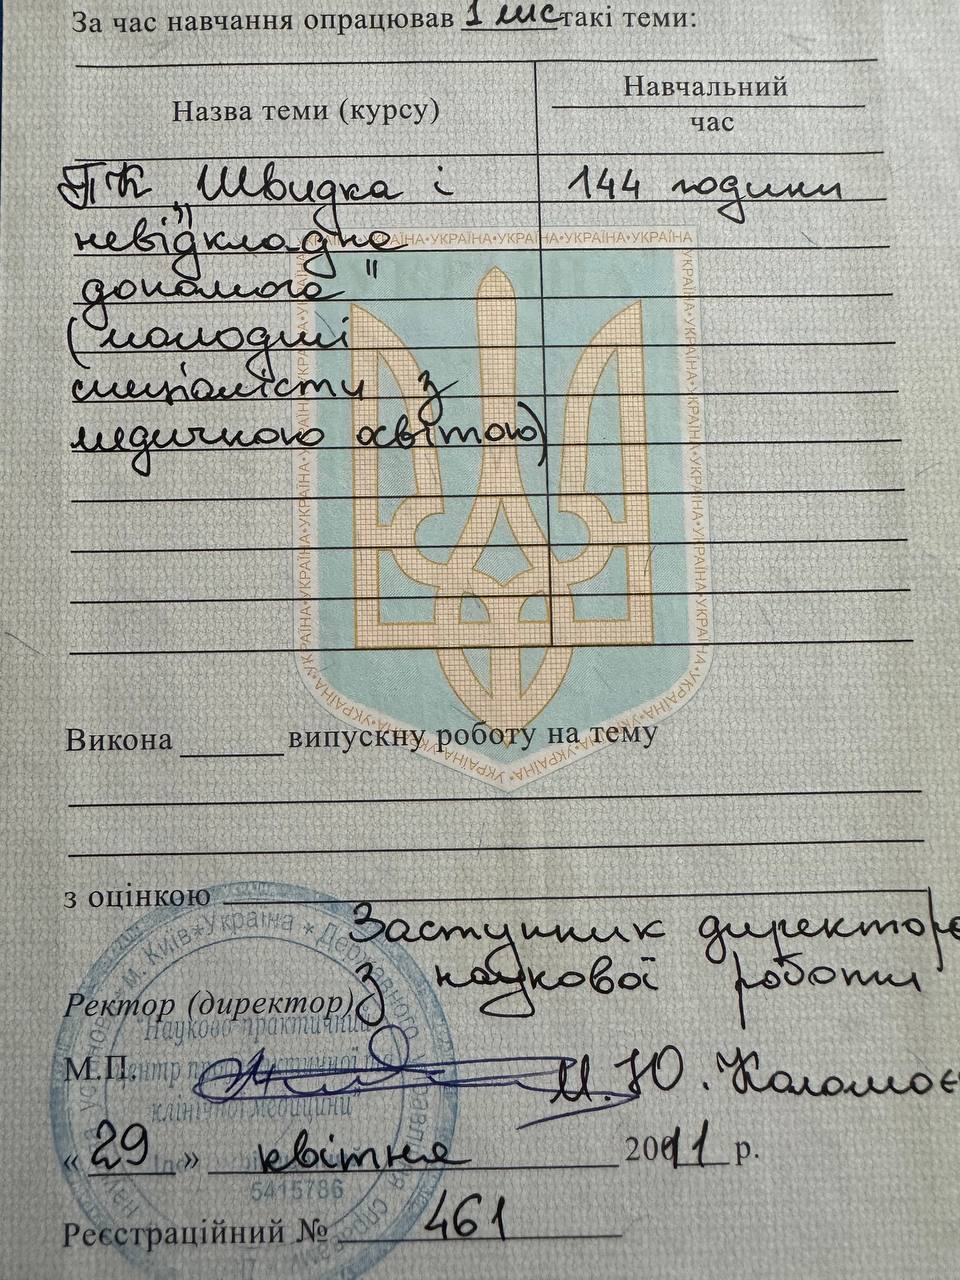 За час навчання опрацював 1 міс такі теми:
Назва теми (курсу)
Навчальний
час
ПК „Швидка і
144 години
невідкладна
допомога"
(молодші
спеціалісти з
медичною освітою)
УКРАЇНА•УКРАЇНА•УКРАЇНА•УКРАЇНА
Викона ______ випускну роботу на тему
з оцінкою
Заступник директора
з наукової роботи
Ректор (директор)
М.П.
И.Ю. Коломоє
« 29 » квітня 2011 р.
Реєстраційний № 461
м. Київ * Україна * Державного управління справами
"Науково-практичний
центр профілактичної та
клінічної медицини"
5415786